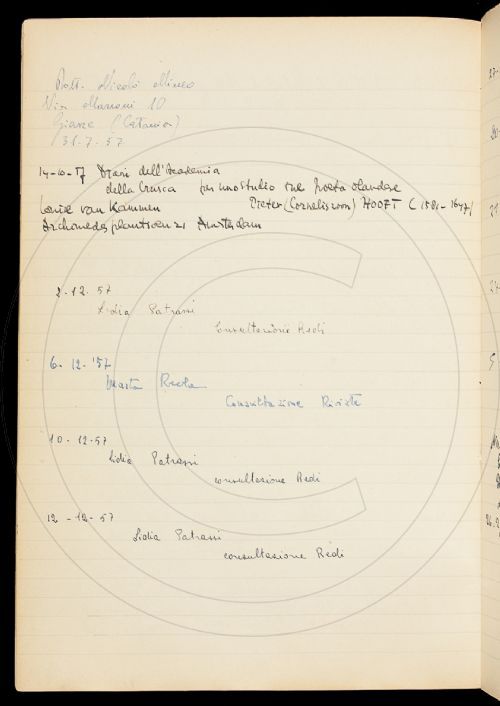 Dott. Nicolò Mineo
Via Marconi 10
Giarre (Catania)
31.7.57
14-10-57 Diari dell'Accademia
della Crusca per uno studio sul Poeta olandese
van Kammen Pieter (Corneliszoon) HOOFT (1581-1647)
Archimedesplantsoen 21 Amsterdam
2-12.57
Lidia Patrassi
Consultazione Redi
6-12.'57
Marta
Consultazione Riviste
10-12-57
Lidia Patrassi
consultazione Redi
12-12-57
Lidia Patrassi
consultazione Redi